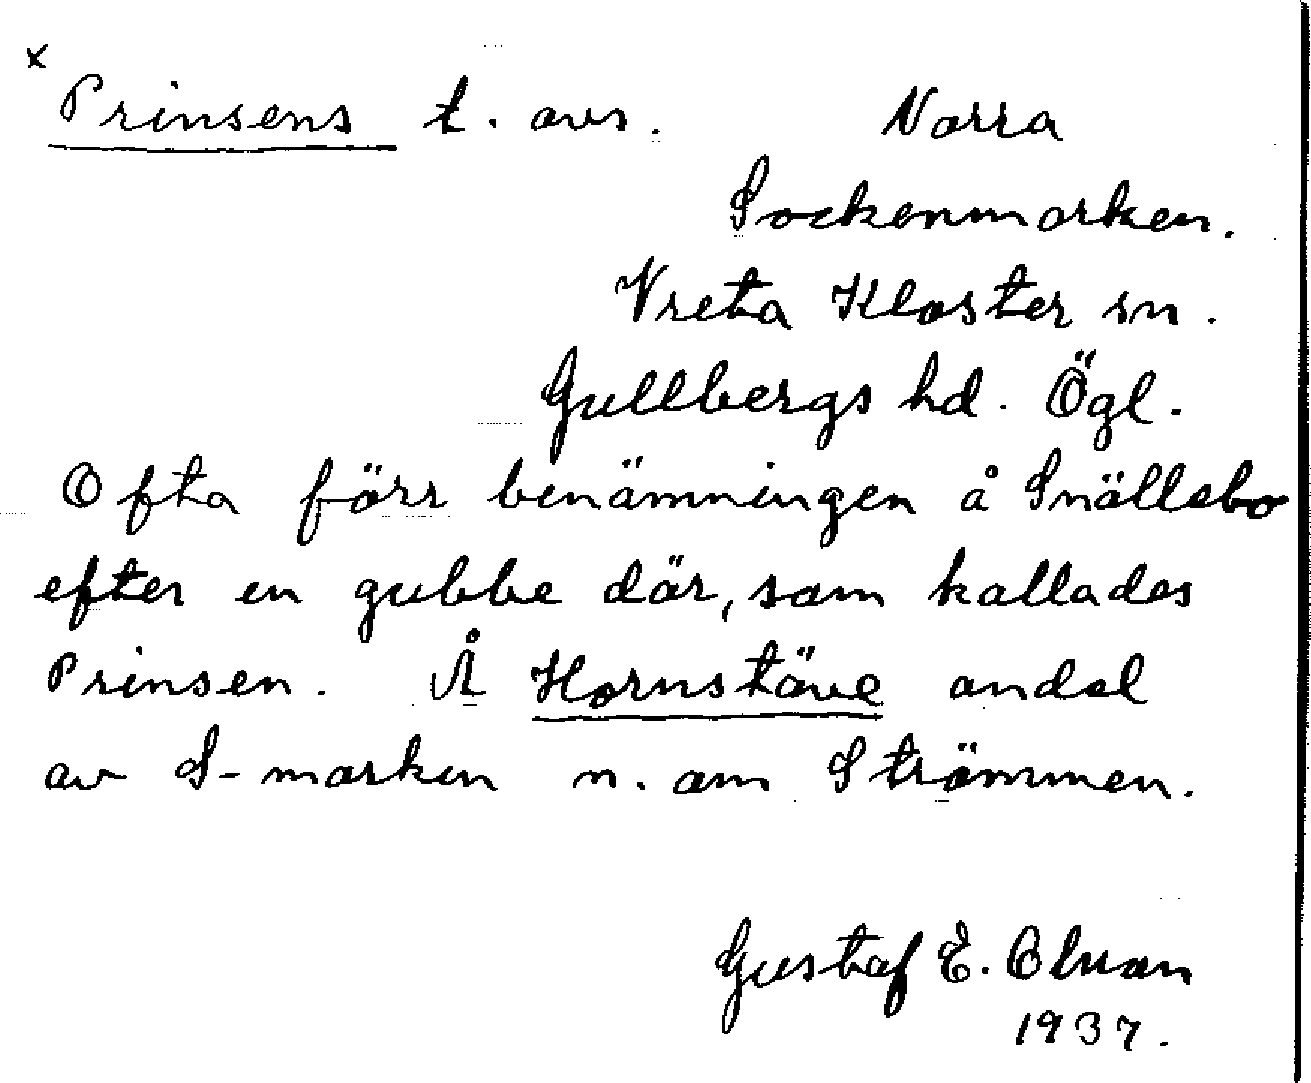 x
Prinsens t. avs. Norra
Sockenmarken.
Vreta Kloster sn.
Gullbergs hd. Ögl.
Ofta förr benämningen å Snällebo
efter en gubbe där, som kallades
Prinsen. Å Hornstäve andel
av S-marken n. om Strömmen.
Gustaf E. Olsson
1937.